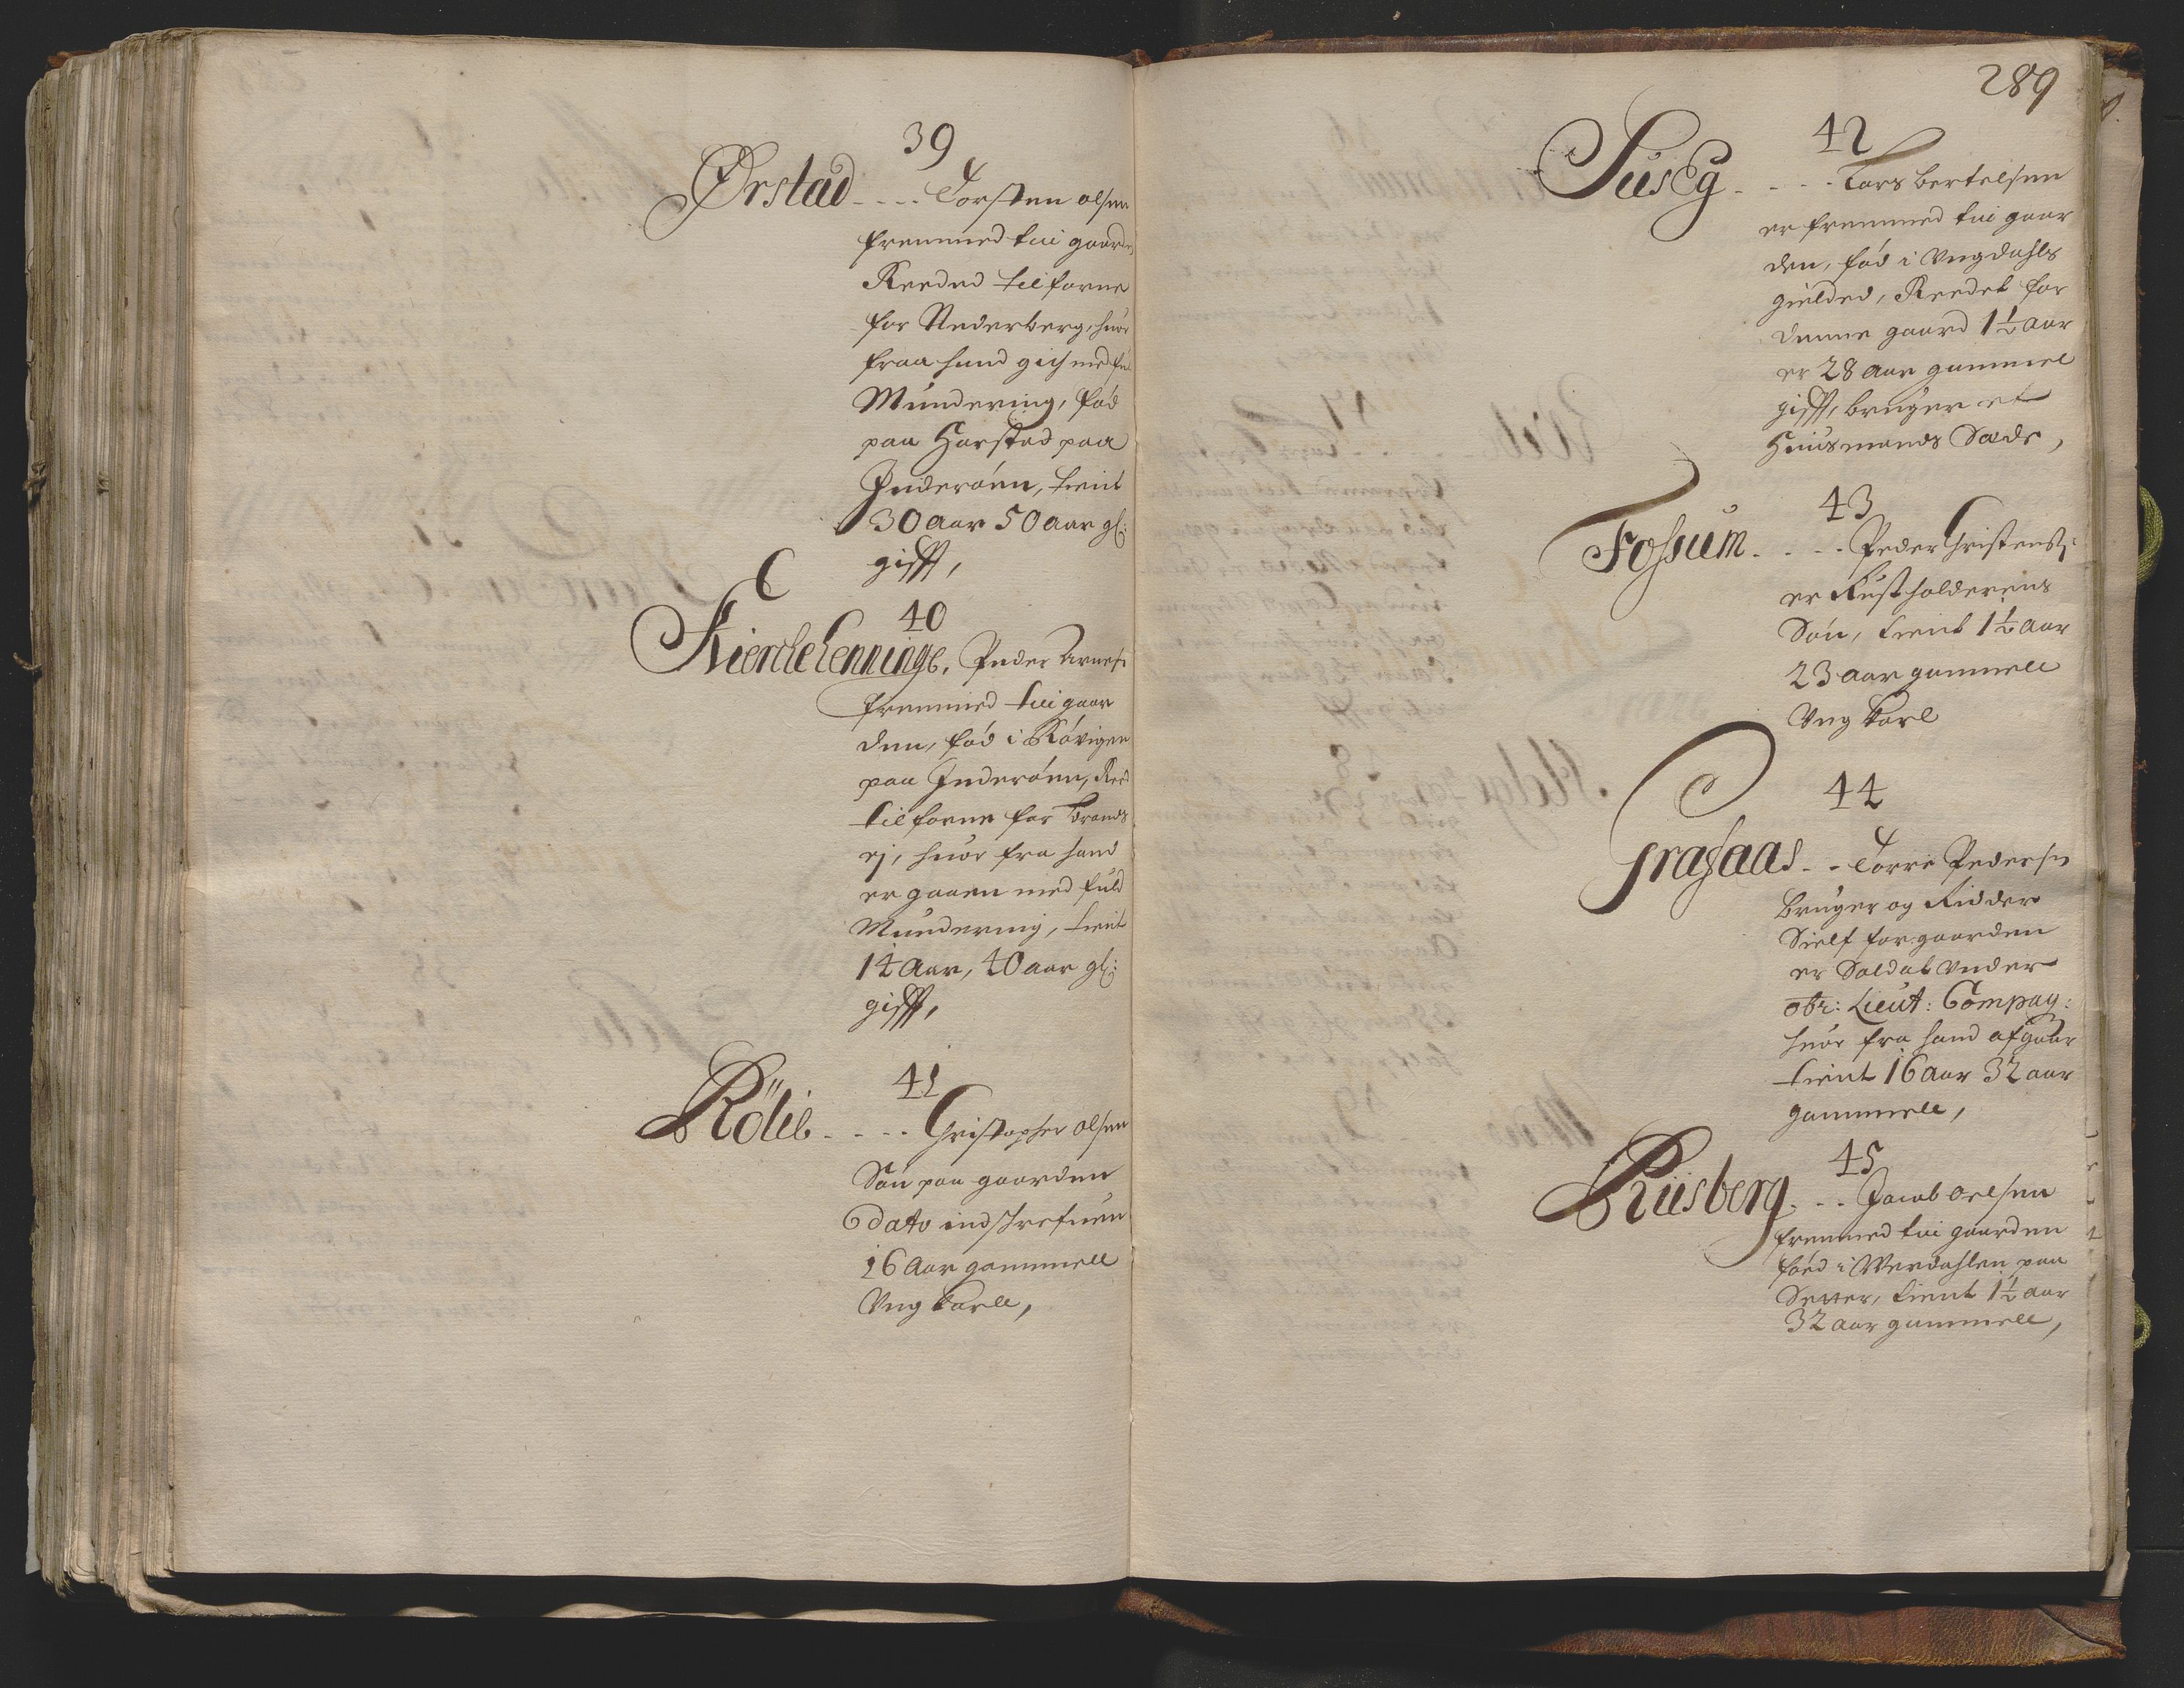 39
Ørstad - - - - Torsten olsen
fremmed tui gaarden
Reeded tilforne
for Nederberg, huor
fraa hand gich med ful
Mundering, fød
paa Harstad paa
Inderøen, tient
30 aar 50 aar gl:
gifft,
40
Kierckelenninge. Peder Arnes:
fremmed tui gaar
den, fød i Røvigen
paa Inderøen, Reed
tilforne for Brands
ej, huor fra hand
er gaaen med fuld
Mundering, tient
14 Aar, 40 aar gl:
gifft,
41
Rölib - - - - Christopher olsen
Søn paa gaarden
dato indschrefuen
16 Aar gammell
Vng karll,
289
42
- - - - Lars bertelsen
er fremmed tui gaar
den, fød i Vngdahls
gielded, Reedet for
denne gaard 1½ aar
er 28 Aar gammel
gifft, bruger et
Huusmands Sæde,
43
Fossum - - - - Peder Christens:
er Rustholderens
Søn, tient 1½ aar
23 aar gammell
Vng karl
44
- - Torre Peders:
bruger og Ridder
Sielf for gaarden
er Soldat Vnder
obr: Lieut: Compag:
huor fra hand afgaar
tient 16 aar 32 aar
gammell,
45
Riisberg. - - Jacob Oelsen
fremmed tui gaarden
føed i Werdahlen paa
Setter, tient 1½ aar
32 aar gammell,